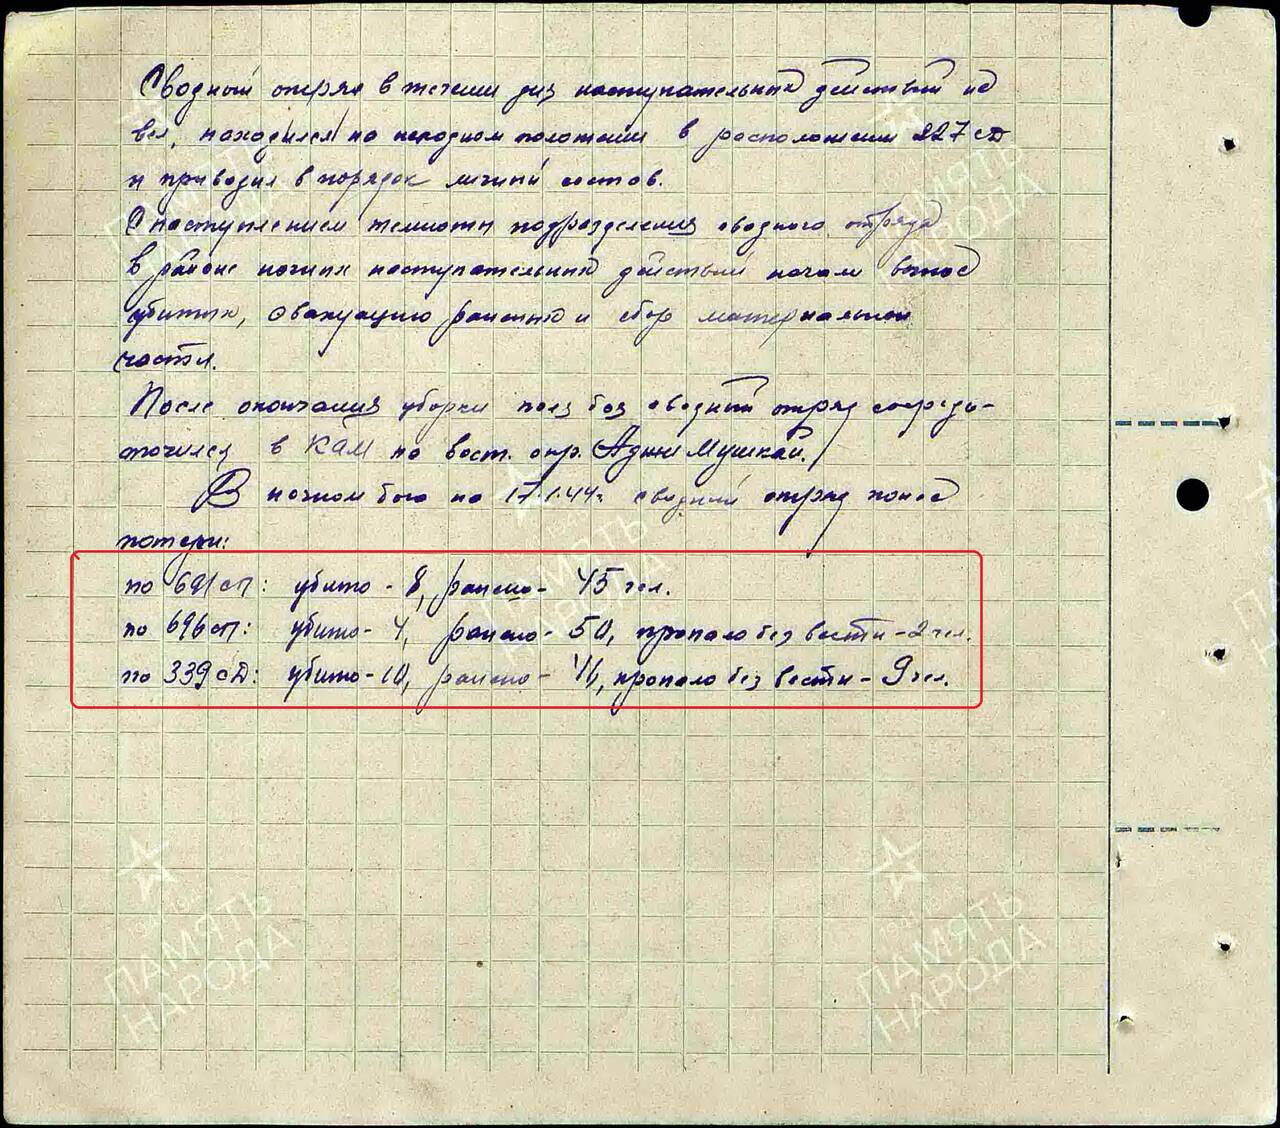 Сводный отряд в течении дня наступательных действий не
вел, находился на исходном положении в расположении 227 сД
и приводил в порядок личный состав.
С наступлением темноты подразделения сводного отряда
в районе ночных наступательных действий начали вынос
убитых, эвакуацию раненых и сбор материальной
части.
После окончания уборки поля боя сводный отряд сосредо-
точился в КАМ. на вост. окр. Аджи Мушкай.
В ночном бою на 17.1.44г. сводный отряд понес
потери:
по 691 сп: убито - 8, ранено - 45 чел.
по 696 сп: убито - 4, ранено - 50, пропало без вести - 2 чел.
по 339 сД: убито - 10, ранено - 46, пропало без вести - 9 чел.
ПАМЯТЬ
НАРОДА
ПАМЯТЬ
НАРОДА
ПАМЯТЬ
НАРОДА
ПАМЯТЬ
НАРОДА
ПАМЯТЬ
НАРОДА